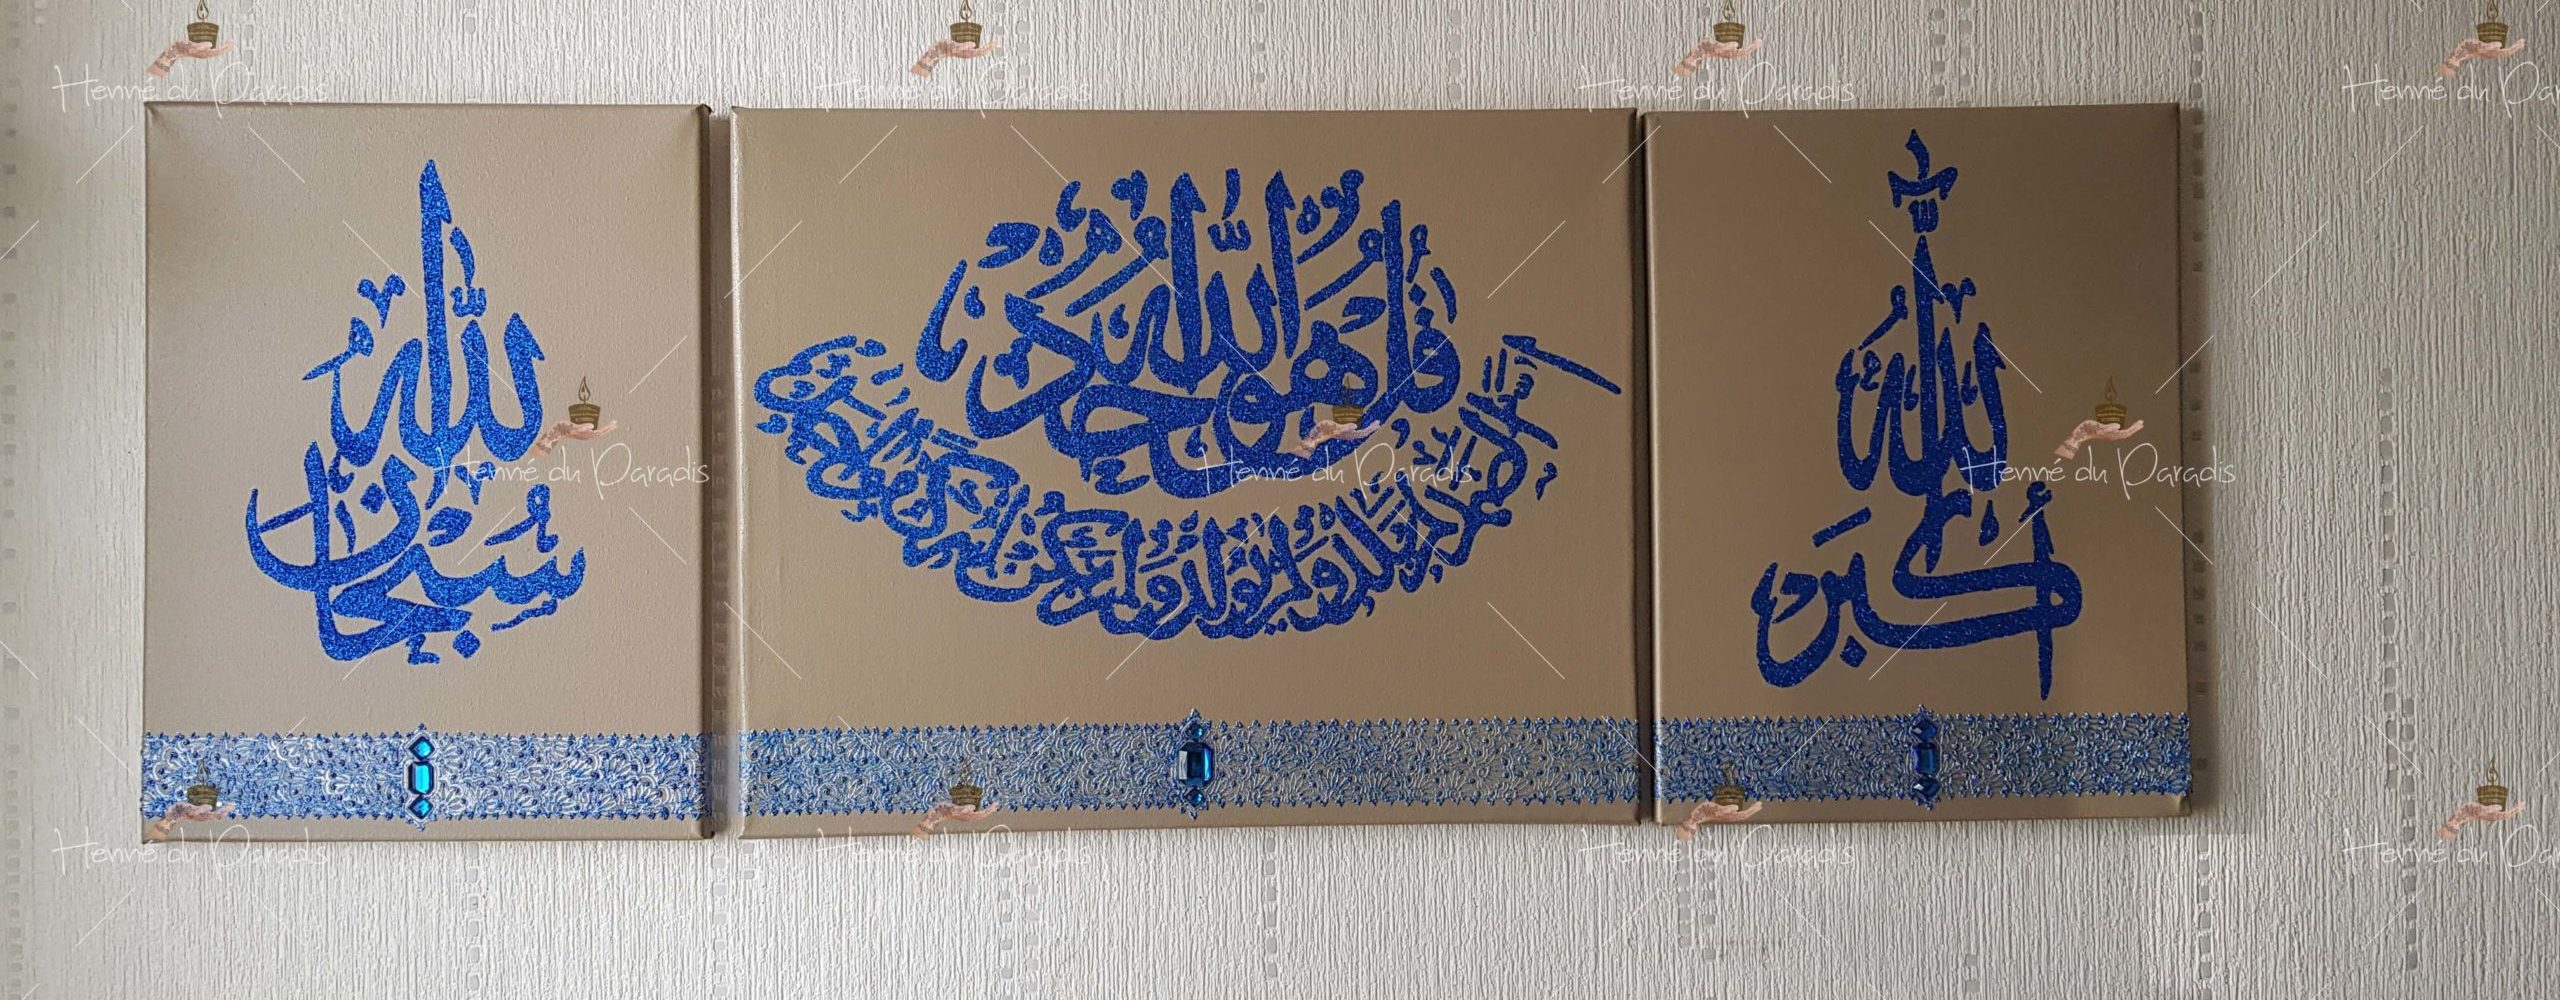 Henné du Paradis
Henné du Paradis
Henné du Paradis
Henné du Pa
الله أكبر
قل هو الله أحد
الله الصمد لم يلد ولم يولد ولم يكن له كفوا أحد
سبحان الله
Henné du Paradis
Henné du Paradis
Henné du Paradis
Henné du Paradis
Henné du Paradis
Henné du Paradis
Henné du Pa